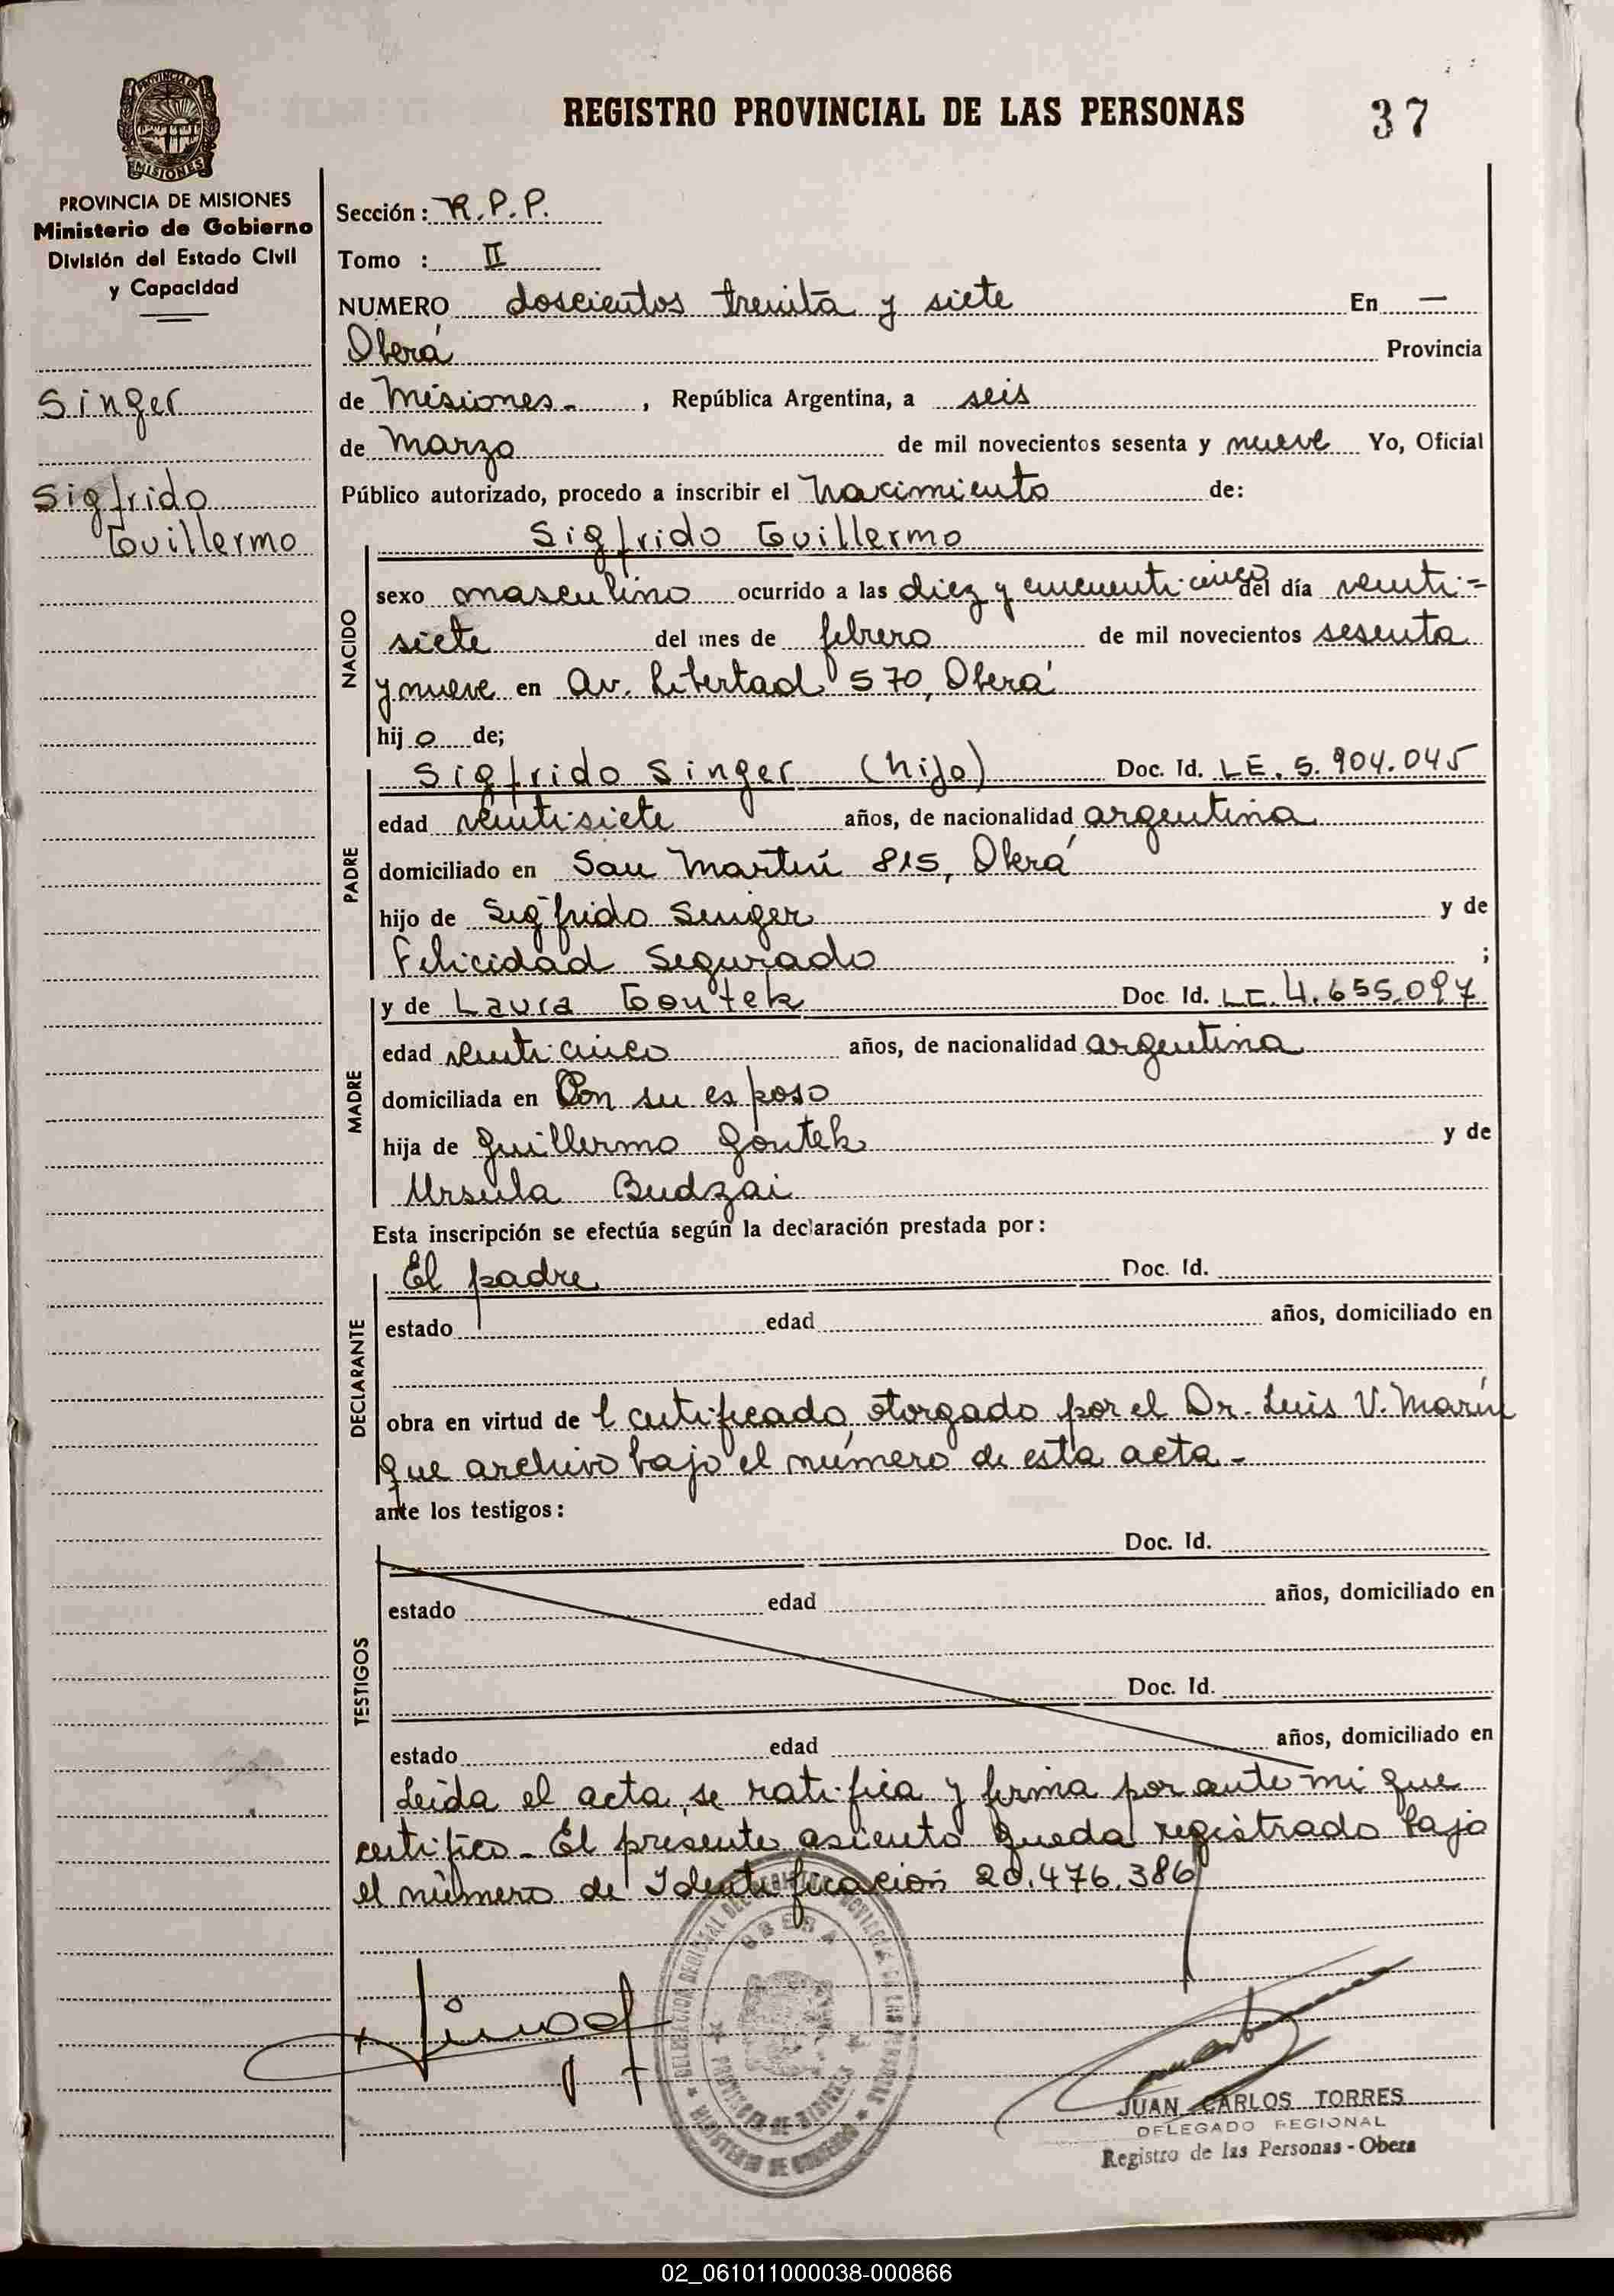 REGISTRO PROVINCIAL DE LAS PERSONAS 37
MISIONES
PROVINCIA DE MISIONES
Ministerio de Gobierno
División del Estado Civil
y Capacidad
Singer
Sigfrido
Guillermo
Sección: R.P.P.
Tomo : II
NUMERO doscientos treinta y siete En —
Oberá Provincia
de Misiones - , República Argentina, a seis
de Marzo de mil novecientos sesenta y nueve Yo, Oficial
Público autorizado, procedo a inscribir el Nacimiento de:
Sigfrido Guillermo
NACIDO
sexo masculino ocurrido a las diez y cincuenti cinco del día veinti-
siete del mes de febrero de mil novecientos sesenta
y nueve en Av. Libertad 570, Oberá
hij o de;
PADRE
Sigfrido Singer (hijo) Doc. Id. LE. 5.904.045
edad veintisiete años, de nacionalidad argentina
domiciliado en San Martín 815, Oberá
hijo de Sigfrido Singer y de
Felicidad Segurado ;
MADRE
y de Laura Gontek Doc. Id. LC. 4.655.097
edad veinticinco años, de nacionalidad argentina
domiciliada en Con su esposo
hija de Guillermo Gontek y de
Ursula Budzai
Esta inscripción se efectúa según la declaración prestada por:
DECLARANTE
El padre Doc. Id.
estado edad años, domiciliado en
obra en virtud de l certificado, otorgado por el Dr. Luis V. Marín
que archivo bajo el número de esta acta -
ante los testigos:
TESTIGOS
Doc. Id.
estado edad años, domiciliado en
Doc. Id.
estado edad años, domiciliado en
Leída el acta, se ratifica y firma por ante mi que
certifico - El presente asiento queda registrado bajo
el número de Identificación 20.476.386
DELEGACION REGIONAL DEL REGISTRO PROVINCIAL DE LAS PERSONAS
OBERA
PROVINCIA DE MISIONES
MINISTERIO DE GOBIERNO
JUAN CARLOS TORRES
DELEGADO REGIONAL
Registro de las Personas - Obera
02_061011000038-000866